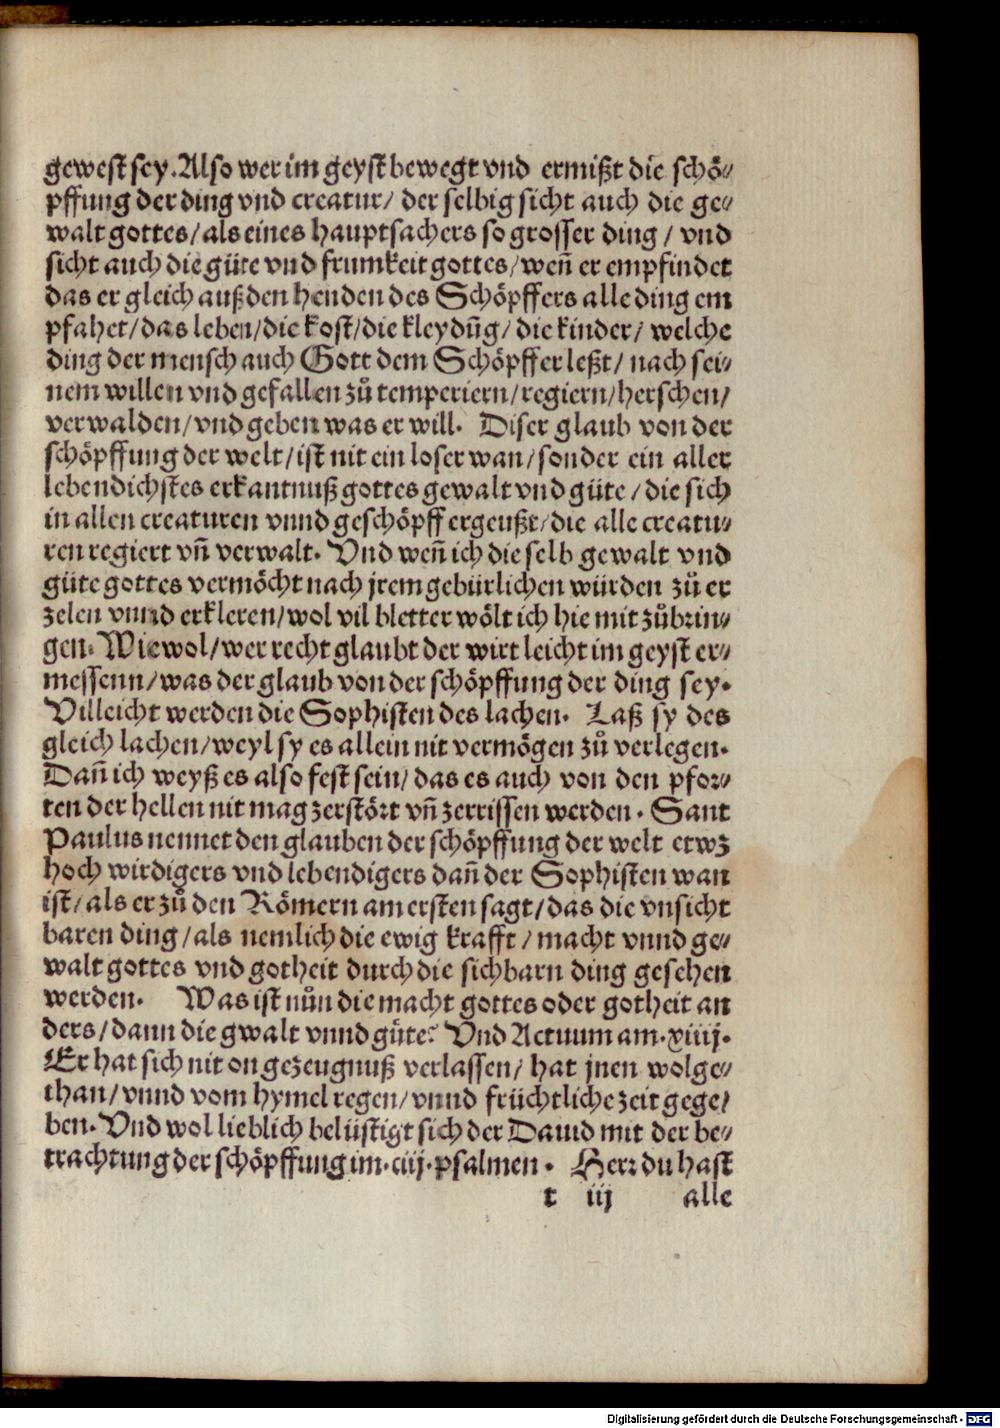 gewest sey. Also wer im geyst bewegt vnd ermißt die schö⸗
pffung der ding vnd creatur/ der selbig sicht auch die ge⸗
walt gottes/ als eines hauptsachers so grosser ding / vnd
sicht auch die güte vnd frumkeit gottes/ weñ er empfindet
das er gleich auß den henden des Schöpffers alle ding em
pfahet/ das leben/ die kost/ die kleydũg/ die kinder/ welche
ding der mensch auch Gott dem Schöpffer leßt/ nach sei⸗
nem willen vnd gefallen zů temperiern/ regiern/ herschen/
verwalden/ vnd geben was er will. Diser glaub von der
schöpffung der welt/ ist nit ein loser wan/ sonder ein aller
lebendichstes erkantnuß gottes gewalt vnd güte / die sich
in allen creaturen vnnd geschöpff ergeußt/ die alle creatu⸗
ren regiert vñ verwalt. Vnd weñ ich die selb gewalt vnd
güte gottes vermöcht nach jrem gebürlichen würden zů er
zelen vnnd erkleren/ wol vil bletter wölt ich hie mit zůbrin⸗
gen. Wiewol/ wer recht glaubt der wirt leicht im geyst er⸗
messenn/ was der glaub von der schöpffung der ding sey.
Villeicht werden die Sophisten des lachen. Laß sy des
gleich lachen/ weyl sy es allein nit vermögen zů verlegen.
Dañ ich weyß es also fest sein/ das es auch von den pfor⸗
ten der hellen nit mag zerstört vñ zerrissen werden. Sant
Paulus nennet den glauben der schöpffung der welt etwz
hoch wirdigers vnd lebendigers dañ der Sophisten wan
ist/ als er zů den Römern am ersten sagt/ das die vnsicht
baren ding/ als nemlich die ewig krafft / macht vnnd ge⸗
walt gottes vnd gotheit durch die sichbarn ding gesehen
werden. Was ist nůn die macht gottes oder gotheit an
ders/ dann die gwalt vnnd güte? Vnd Actuum am.xiiij.
Er hat sich nit on gezeugnuß verlassen/ hat jnen wolge⸗
than/ vnnd vom hymel regen/ vnnd früchtliche zeit gege/
ben. Vnd wol lieblich belüstigt sich der Dauid mit der be⸗
trachtung der schöpffung im.ciij.psalmen. Herr du hast
t iij alle
Digitalisierung gefördert durch die Deutsche Forschungsgemeinschaft - DFG